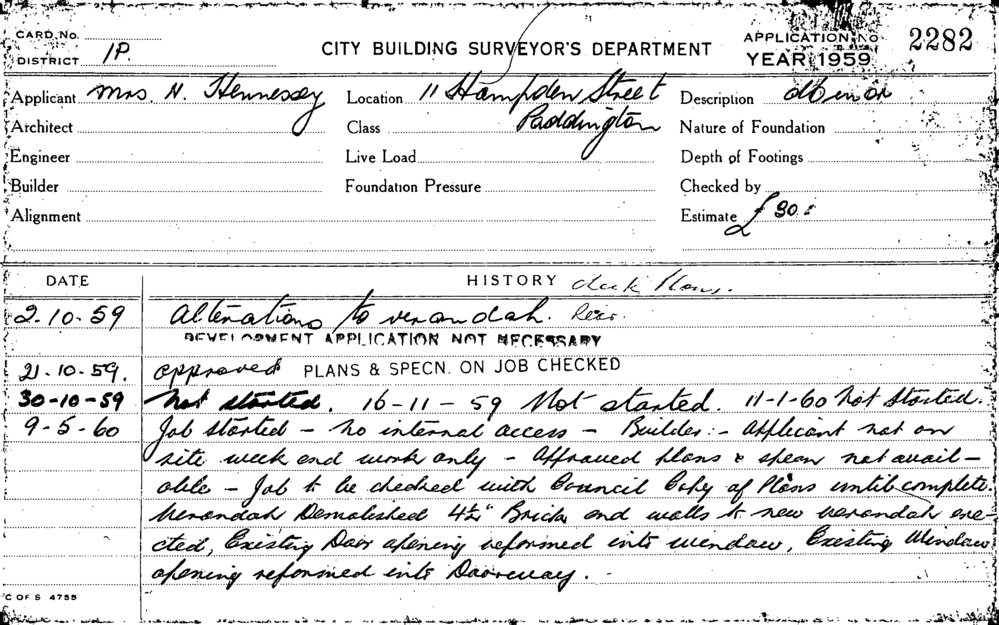 CARD No.
DISTRICT 1P.
CITY BUILDING SURVEYOR'S DEPARTMENT
APPLICATION No 2282
YEAR 1959
Applicant Mrs. N. Hennessy Location 11 Hampden Street Description Minor
Architect Class Paddington Nature of Foundation
Engineer Live Load Depth of Footings
Builder Foundation Pressure Checked by
Alignment Estimate £30
DATE HISTORY
2-10-59 Alterations to verandah.
DEVELOPMENT APPLICATION NOT NECESSARY
21-10-59. approved PLANS & SPECN. ON JOB CHECKED
30-10-59 Not started. 16-11-59 Not started. 11-1-60 Not Started.
9-5-60 Job started – no internal access – Builder:- Applicant not on
site week end work only – Approved plans & specn not avail–
able – Job to be checked with Council Copy of Plans until complete.
Verandah Demolished 4½" Brick end walls to new verandah ere–
cted, Existing Door opening reformed into window, Existing Window
opening reformed into Doorway.
C OF S 4755